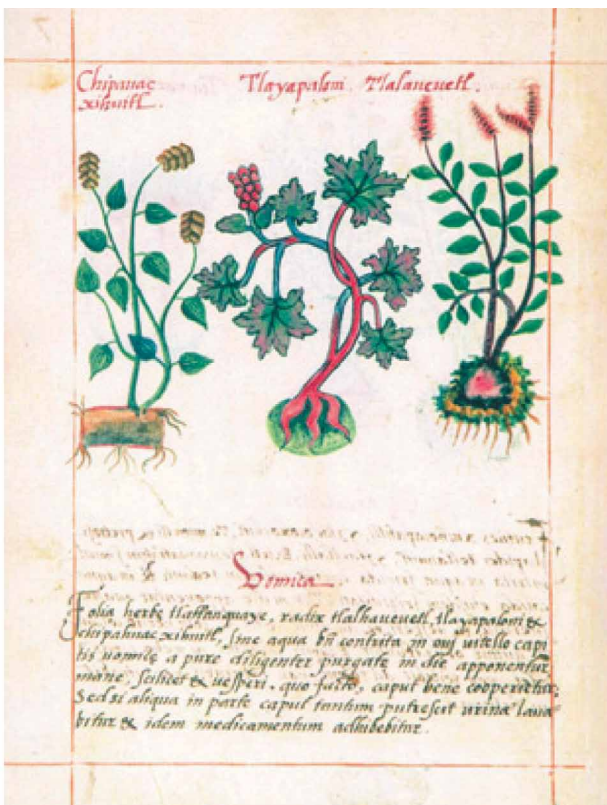 Chipauac Tlayapaloni. Tlalaueuetl.
xihuitl.
Vomica
Folia herbę tlatlanquaye, radix tlalhaueuetl, tlayapaloni &
chipahuac xihuitl, sine aqua bñ contrita in oui uitello capi
tis uomicę a pure diligenter purgatę in die apponentur
mane, scilicet & uesperi. quo facto, caput bene cooperietur.
Sed si aliqua in parte caput tantum putrescit urina laua
bitur & idem medicamentum adhibebitur.